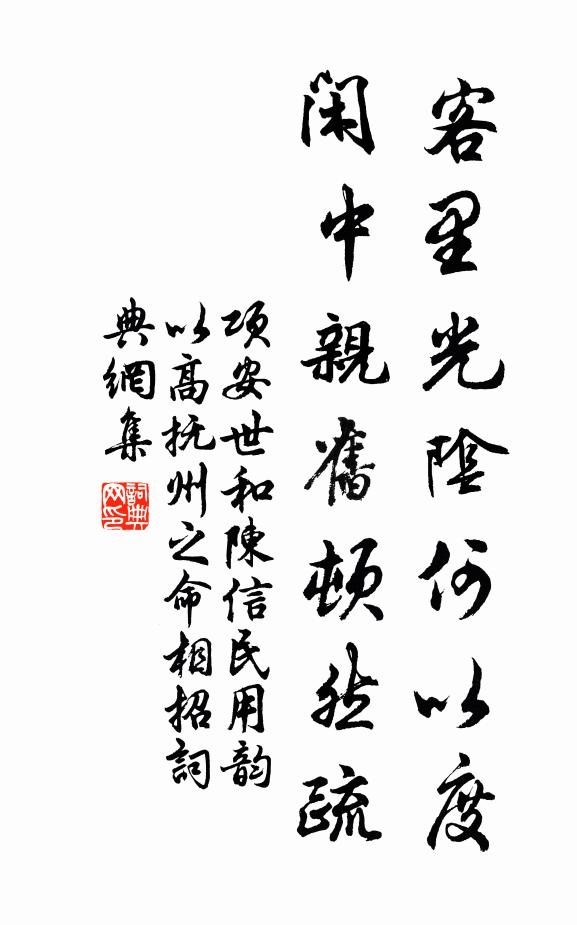 客里光陰何以度
閑中親舊頓然疏
项安世和陳信民用韵
以高抚州之命相招詞
典網集
詞典网印